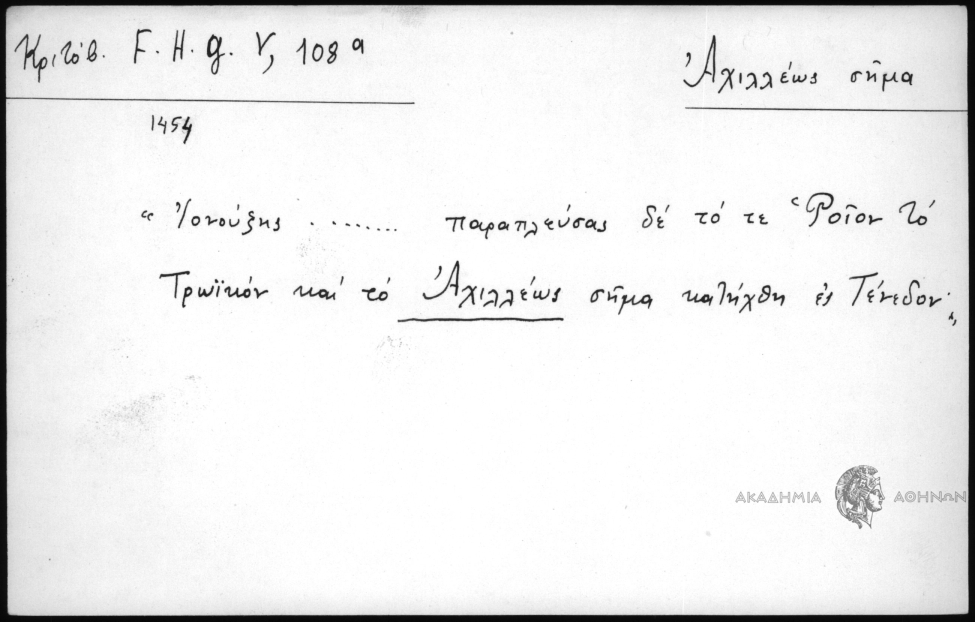 Κριτόβ. F. H. g. V, 108 a
Ἀχιλλέως σῆμα
1454
“ Ἰονούξης ......... παραπλεύσας δέ τό τε Ῥοῖον τό
Τρωϊκόν καί τό Ἀχιλλέως σῆμα κατήχθη ἐς Τένεδον·„
ΑΚΑΔΗΜΙΑ ΑΘΗΝΩΝ